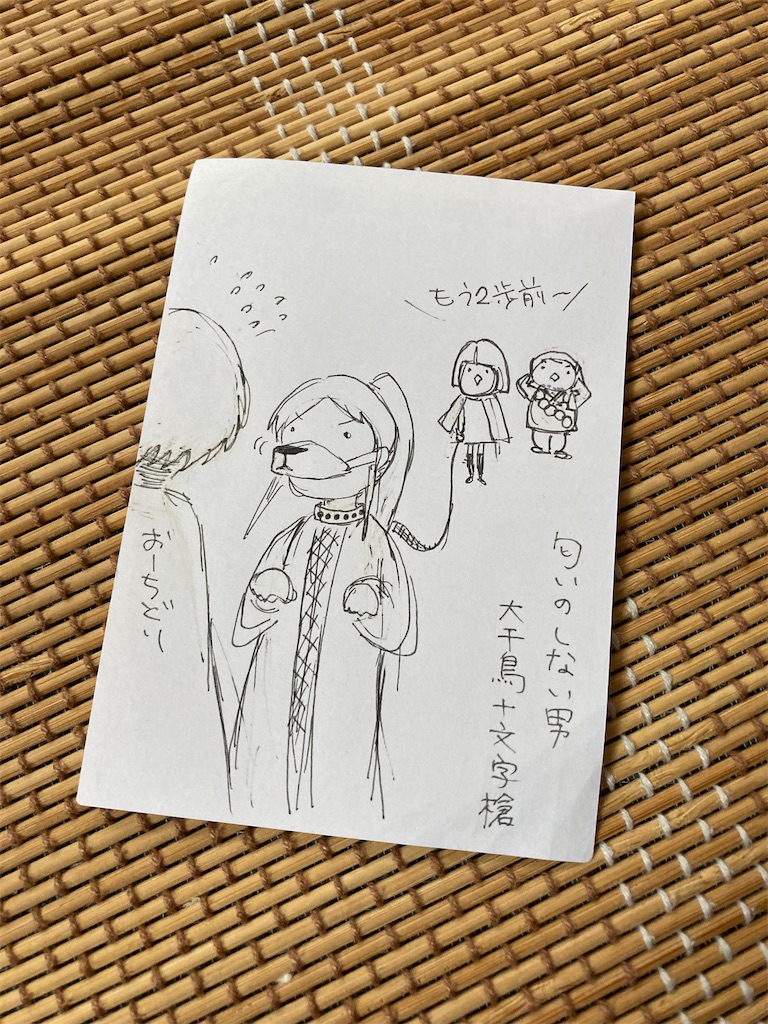 もう2歩前〜
匂いのしない男
大千鳥十文字槍
おーちどり